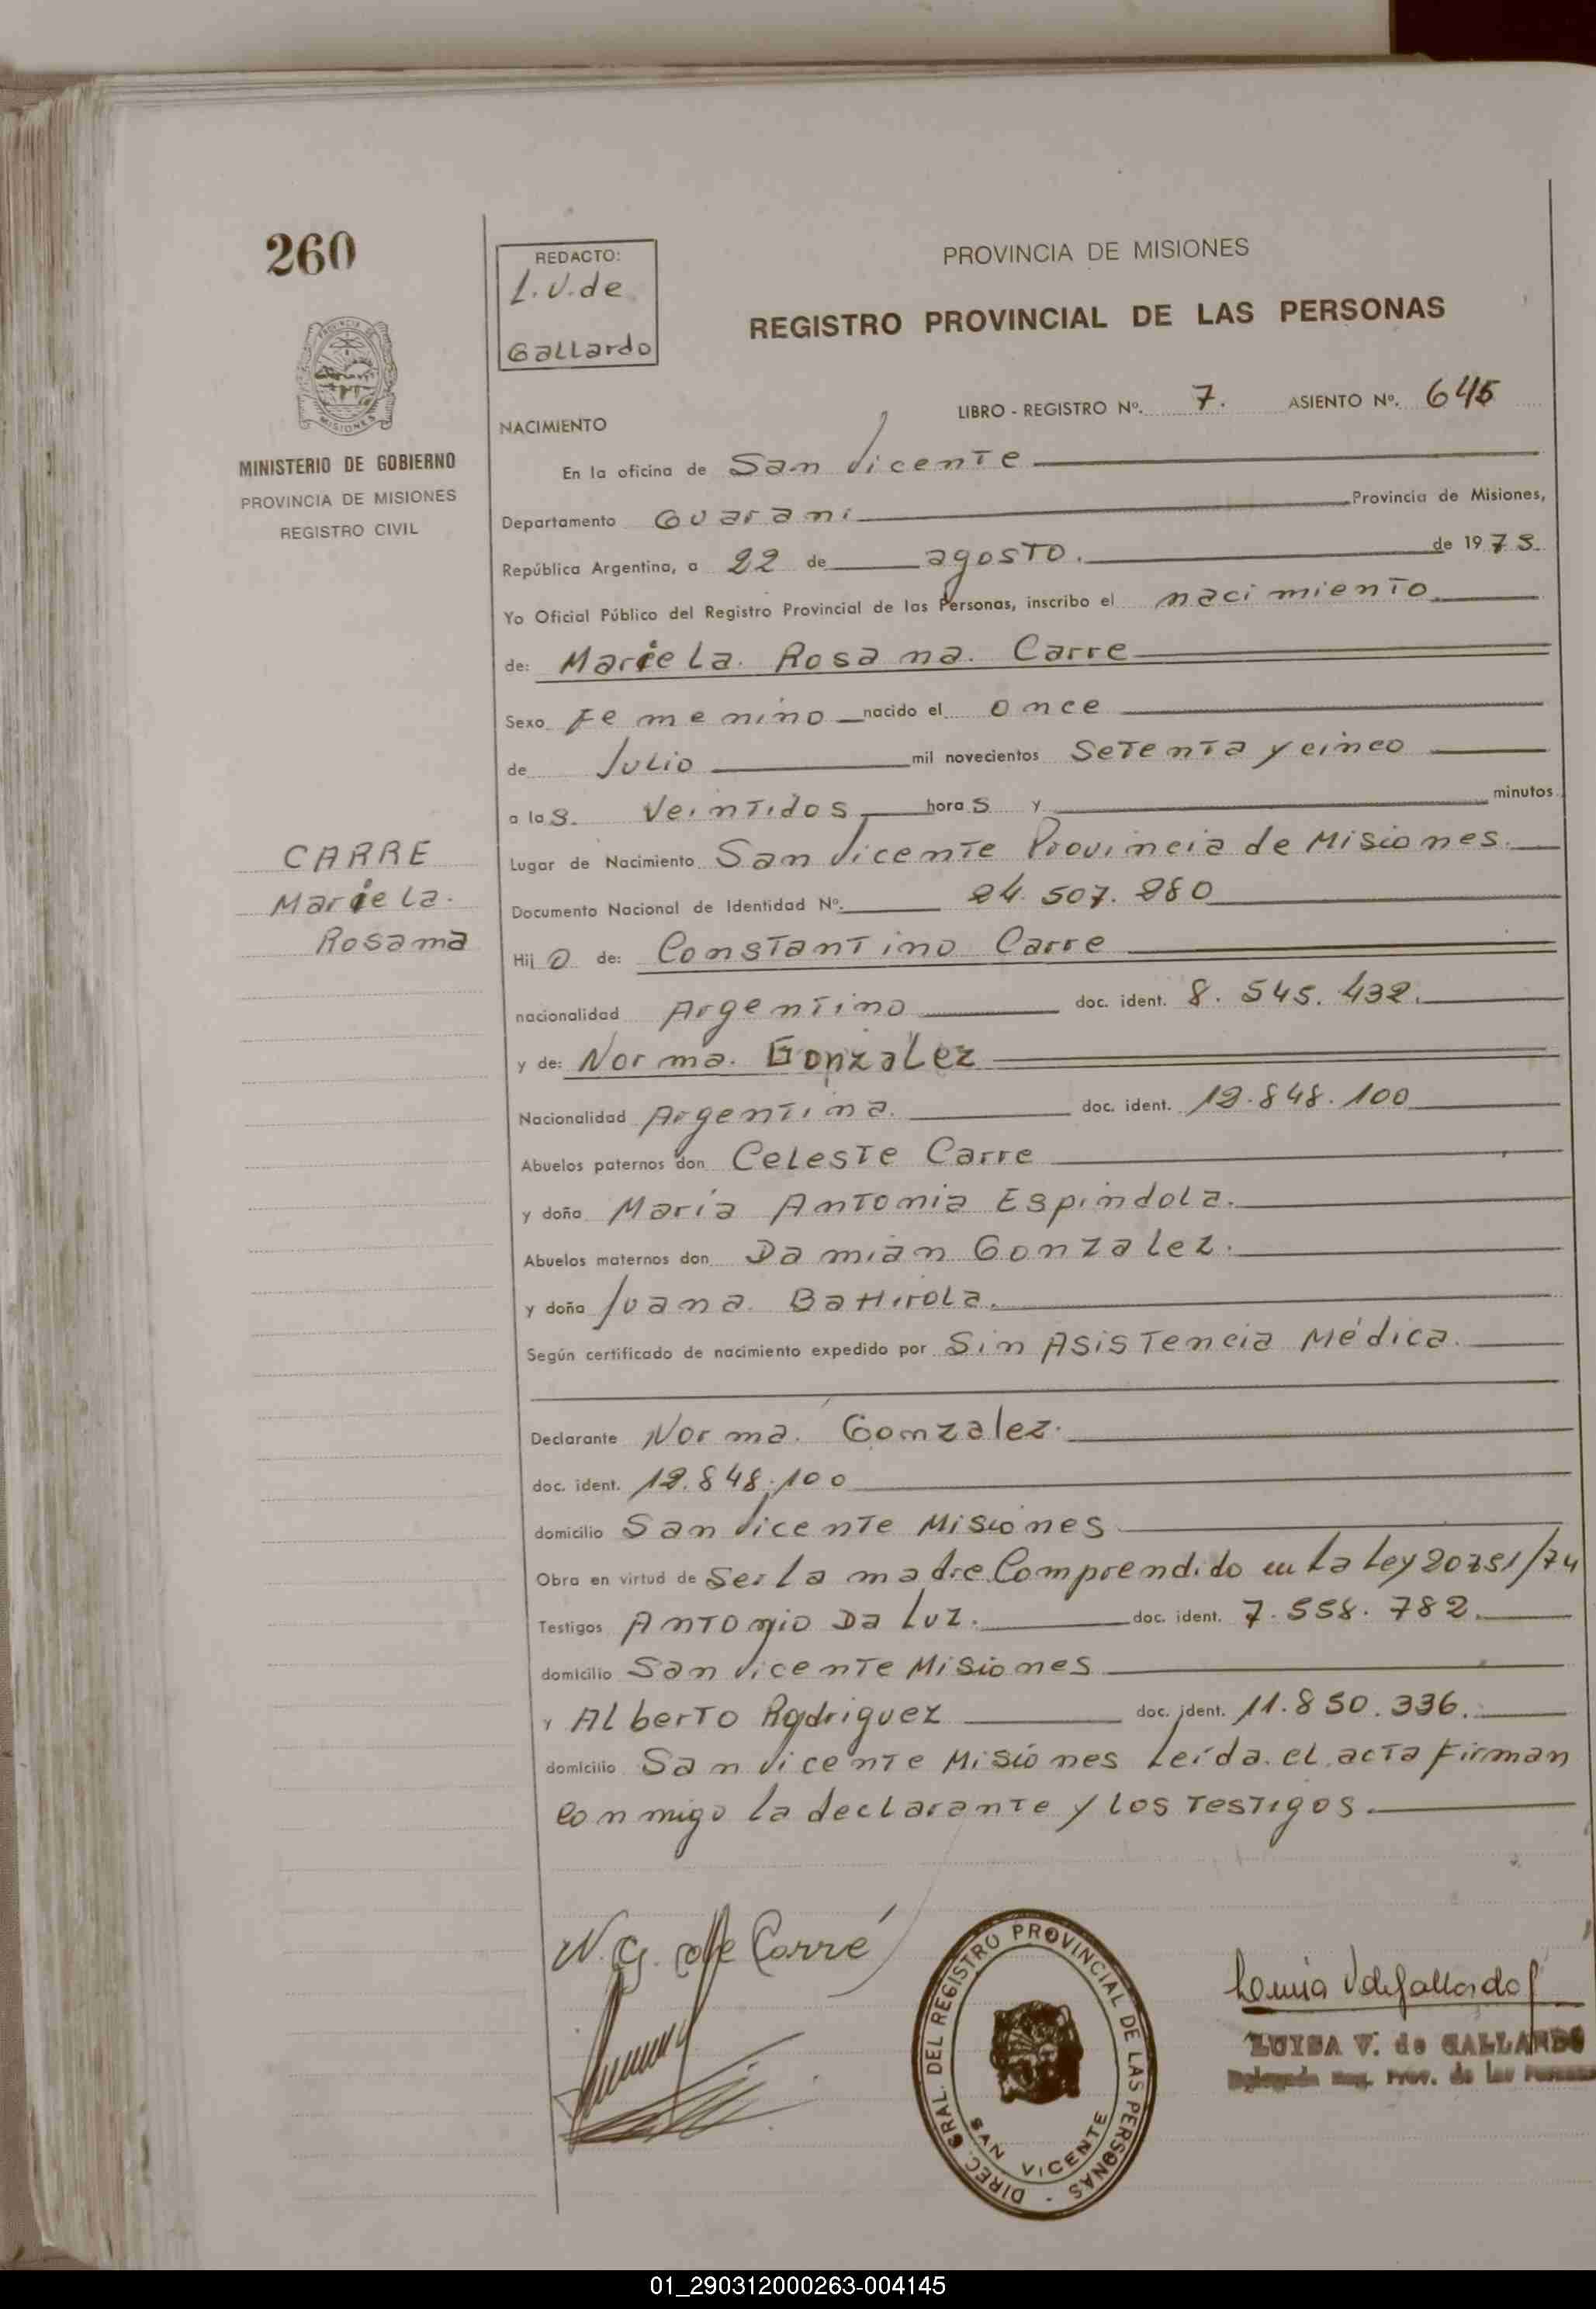 260
REDACTO:
L.V. de
Gallardo
PROVINCIA DE MISIONES
REGISTRO PROVINCIAL DE LAS PERSONAS
MISIONES
MINISTERIO DE GOBIERNO
PROVINCIA DE MISIONES
REGISTRO CIVIL
LIBRO - REGISTRO Nº. 7. ASIENTO Nº. 645
NACIMIENTO
En la oficina de San Vicente
Departamento Guarani Provincia de Misiones,
República Argentina, a 22 de agosto. de 1975.
Yo Oficial Público del Registro Provincial de las Personas, inscribo el nacimiento
de: Mariela. Rosana. Carre
Sexo Femenino nacido el once
de Julio mil novecientos setenta y cinco
a las. Veintidos horas y minutos
CARRE
Mariela.
Rosana
Lugar de Nacimiento San Vicente Provincia de Misiones.
Documento Nacional de Identidad Nº. 24.507.280
Hijo de: Constantino Carre
nacionalidad Argentino doc. ident. 8.545.432.
y de: Norma. Gonzalez
Nacionalidad Argentina. doc. ident. 12.848.100
Abuelos paternos don Celeste Carre
y doña María Antonia Espindola.
Abuelos maternos don Damian Gonzalez.
y doña Juana. Battirola.
Según certificado de nacimiento expedido por Sin Asistencia Médica.
Declarante Norma. Gonzalez.
doc. ident. 12.848.100
domicilio San Vicente Misiones
Obra en virtud de Ser la madre Comprendido en la Ley 20751/74
Testigos Antonio Da Luz. doc. ident. 7.558.782.
domicilio San Vicente Misiones
y Alberto Rodriguez doc. ident. 11.850.336.
domicilio San Vicente Misiones Leída. el acta Firman
conmigo la declarante y los testigos.
N. G. de Carré
DIREC. GRAL. DEL REGISTRO PROVINCIAL DE LAS PERSONAS -
SAN VICENTE
Luisa V de Gallardo
LUISA V. de GALLARDO
Delegada Reg. Prov. de las Personas
01_290312000263-004145